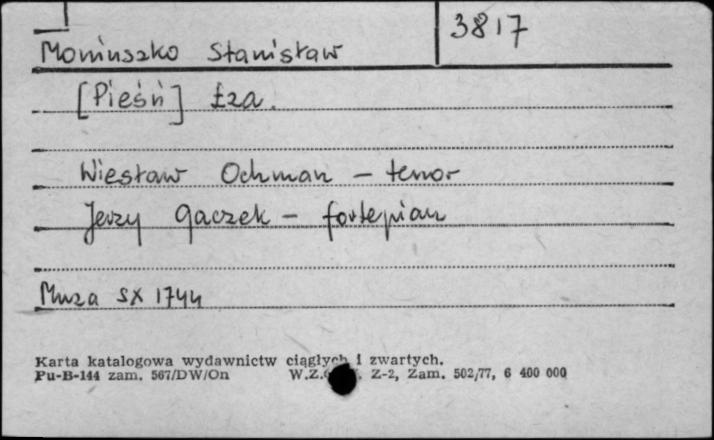 3817
Moniuszko Stanisław
[Pieśń] Łza.
Wiesław Ochman - tenor
Jerzy Gaczek - fortepian
Muza SX 1744
Karta katalogowa wydawnictw ciągłych i zwartych.
Pu-B-144 zam. 567/DW/On W.Z. Z-2, Zam. 502/77, 6 400 000